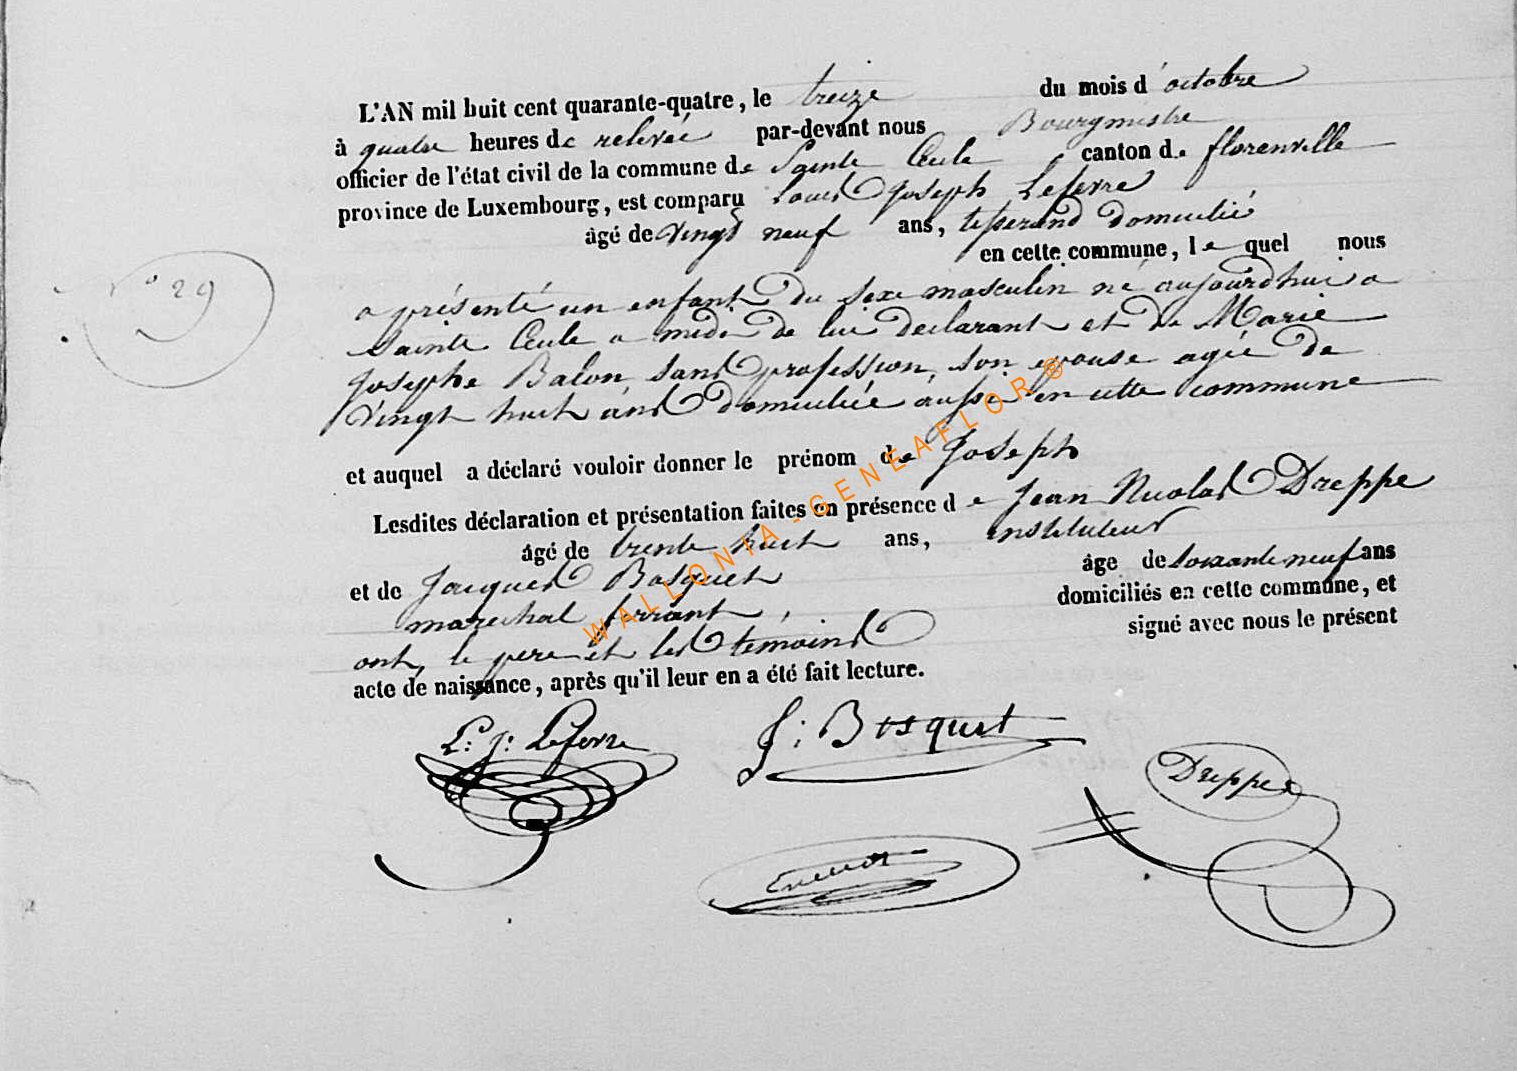 L'AN mil huit cent quarante-quatre, le treize du mois d'octobre
à quatre heures de relevée par-devant nous Bourgmestre
officier de l'état civil de la commune de Sainte Cecile canton de florenville
province de Luxembourg, est comparu Louis Joseph Lefevre
âgé de vingt neuf ans, tisserand domicilié
en cette commune, le quel nous
N° 29
a présenté un enfant du sexe masculin né aujourdhui a
Sainte Cecile a midi de lui declarant et de Marie
Josephe Balon, sans profession, son epouse agée de
vingt huit ans domiciliée aussi en cette commune
et auquel a déclaré vouloir donner le prénom de Joseph
Lesdites déclaration et présentation faites en présence de Jean Nicolas Dreppe
âgé de trente huit ans, instituteur
et de Jacques Bosquet âge de soixante neuf ans
marechal ferrant, domiciliés en cette commune, et
ont, le pere et les témoins signé avec nous le présent
acte de naissance, après qu'il leur en a été fait lecture.
L: J: Lefevre J: Bosquet
Dreppe
WALLONIA-GENEAFLOR®